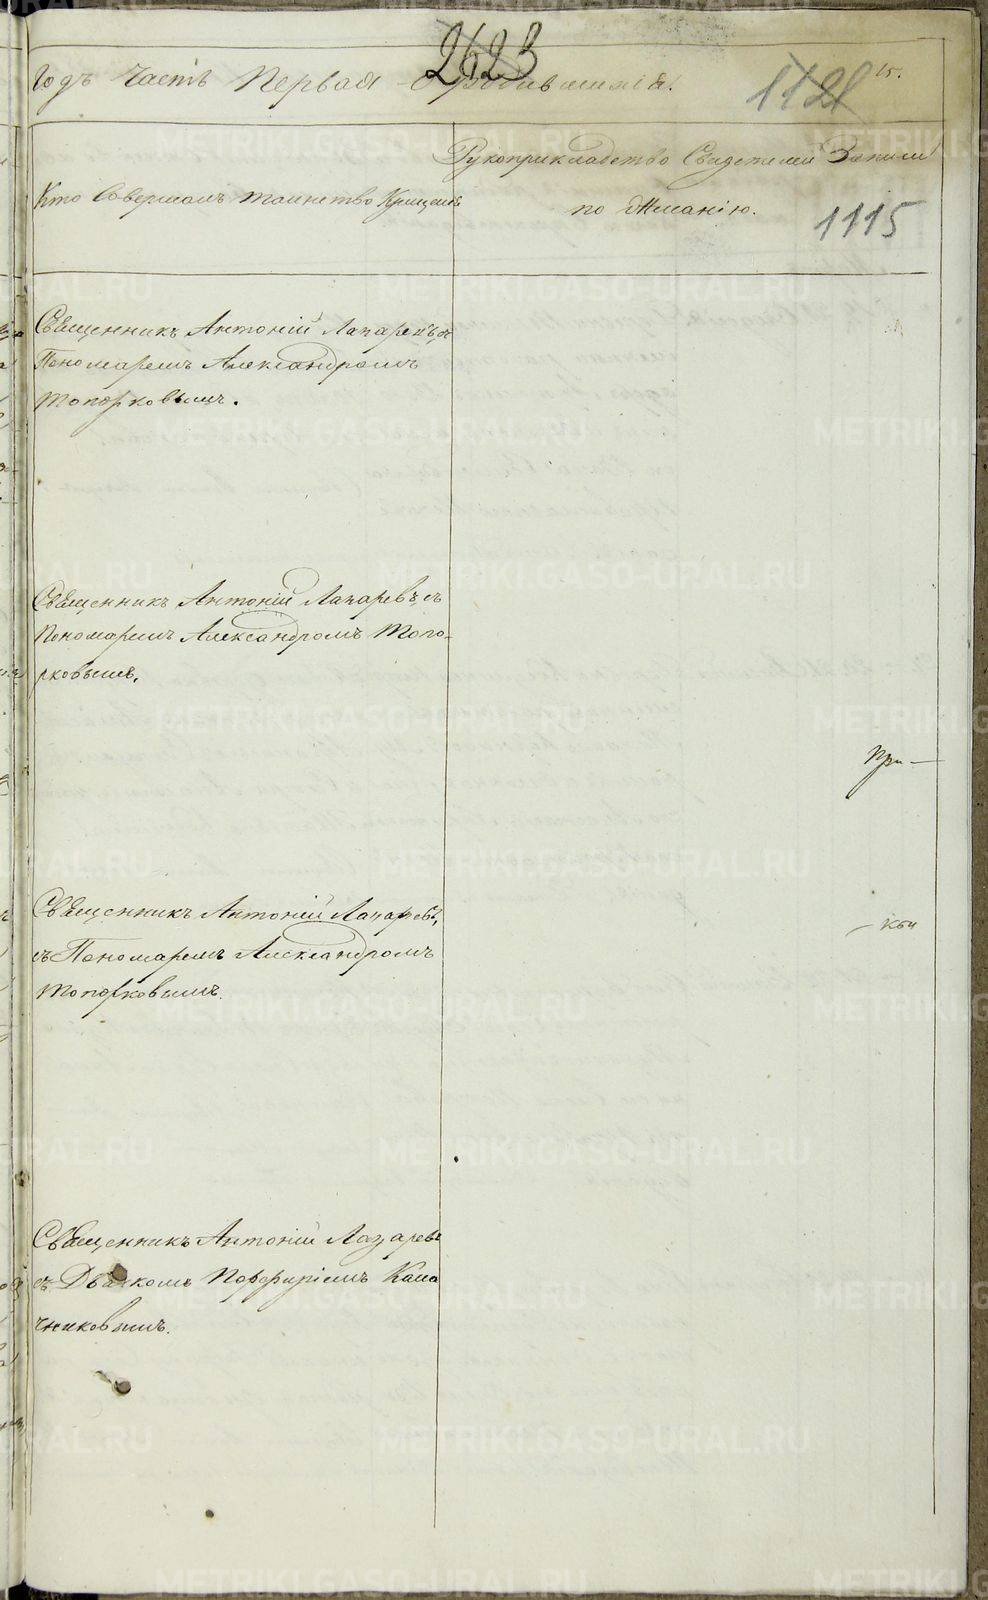 2623
Годъ Часть Первая о родившихся.
1121
15.
Кто совершалъ таинство Крещенія
Рукоприкладство Свидетелей Записи
по желанію.
1115
Священникъ Антоній Лазаревъ, съ
Пономаремъ Александромъ
Топорковымъ.
Священникъ Антоній Лазаревъ, съ
Пономаремъ Александромъ Топо-
рковымъ.
При —
Священникъ Антоній Лазаревъ,
съ Пономаремъ Александромъ
Топорковымъ.
Священникъ Антоній Лазаревъ
съ Дьячкомъ Порфиріемъ Кала
чниковымъ.
METRIKI.GASO-URAL.RU